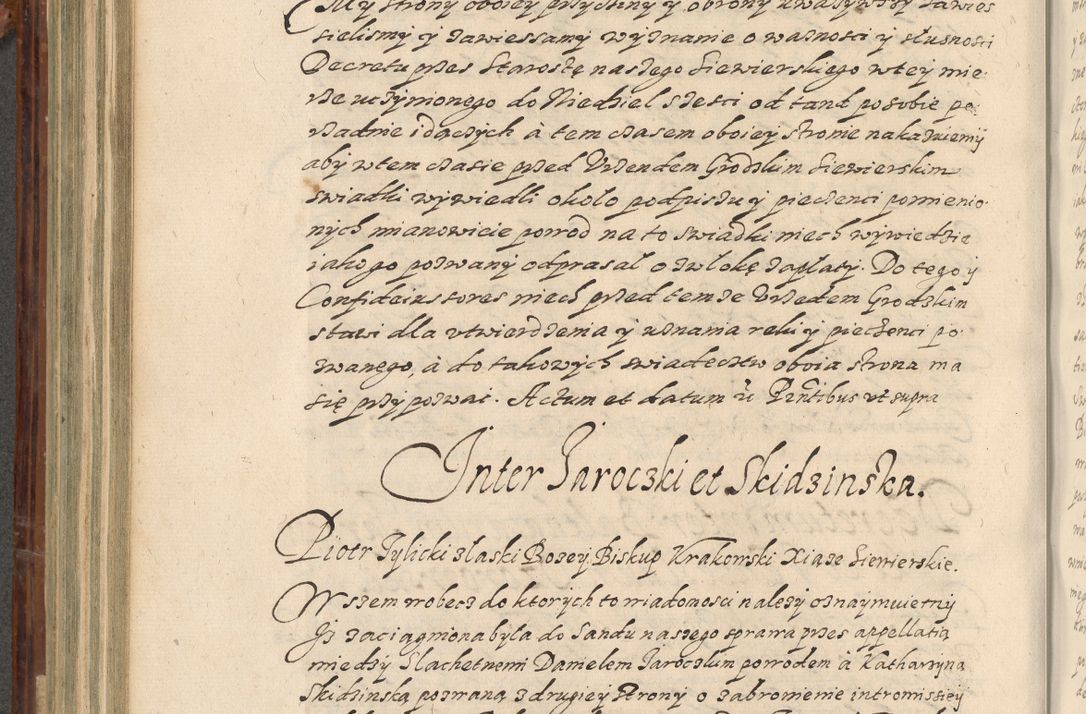 My strony oboiey przyczyny y obrony uwazywszy zawies
sielismy y zawiessamy wyznanie o waznosci y slusnosci
Decretu przes Starostę naszego Siewierskiego w tey mie
rze uczynionego do Niedziel szesci od tand po sobie po
rzadnie idaczych à tem czasem oboiey stronie nakazuiemÿ
aby w tem czasie przed Vrzendem Grodzkim Siewierskim
swiadki wywiedli okolo podpiszu y pieczenci pomienio
nych mianowicie powod na to swiadki niech wywiedzie
iako go pozwany odprasal o zwlokę zaplaty. Do tego y
Confideiussores niech przed temze Vrzedem Grodzkim
stawi dla vtwierdzenia y uznania reki y pieczenci po
zwanego, à do takowych swiadeczw oboia strona ma
się przypozwac. Actum et datum ut Pntibus vt supra
Inter Jaroczki et Skidzinska.
Piotr Tylicki z laski Bozey Biskup Krakowski Xiąze Siewierskie.
Wszem wobecz do ktorych to wiadomosci nalezy oznaymuiemy
Jz zaciągniona byla do Sandu naszego sprawa przes appellatią
między Slachetnemi Danielem Jaroczkim powodem à Katharzyna
Skidzinską pozwaną z drugiey strony o zabronienie intromissiey